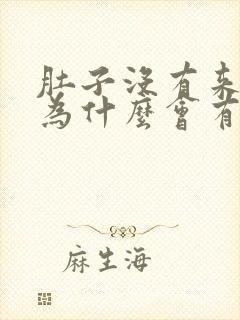 肚子没有来
为什麼會有
麻生海